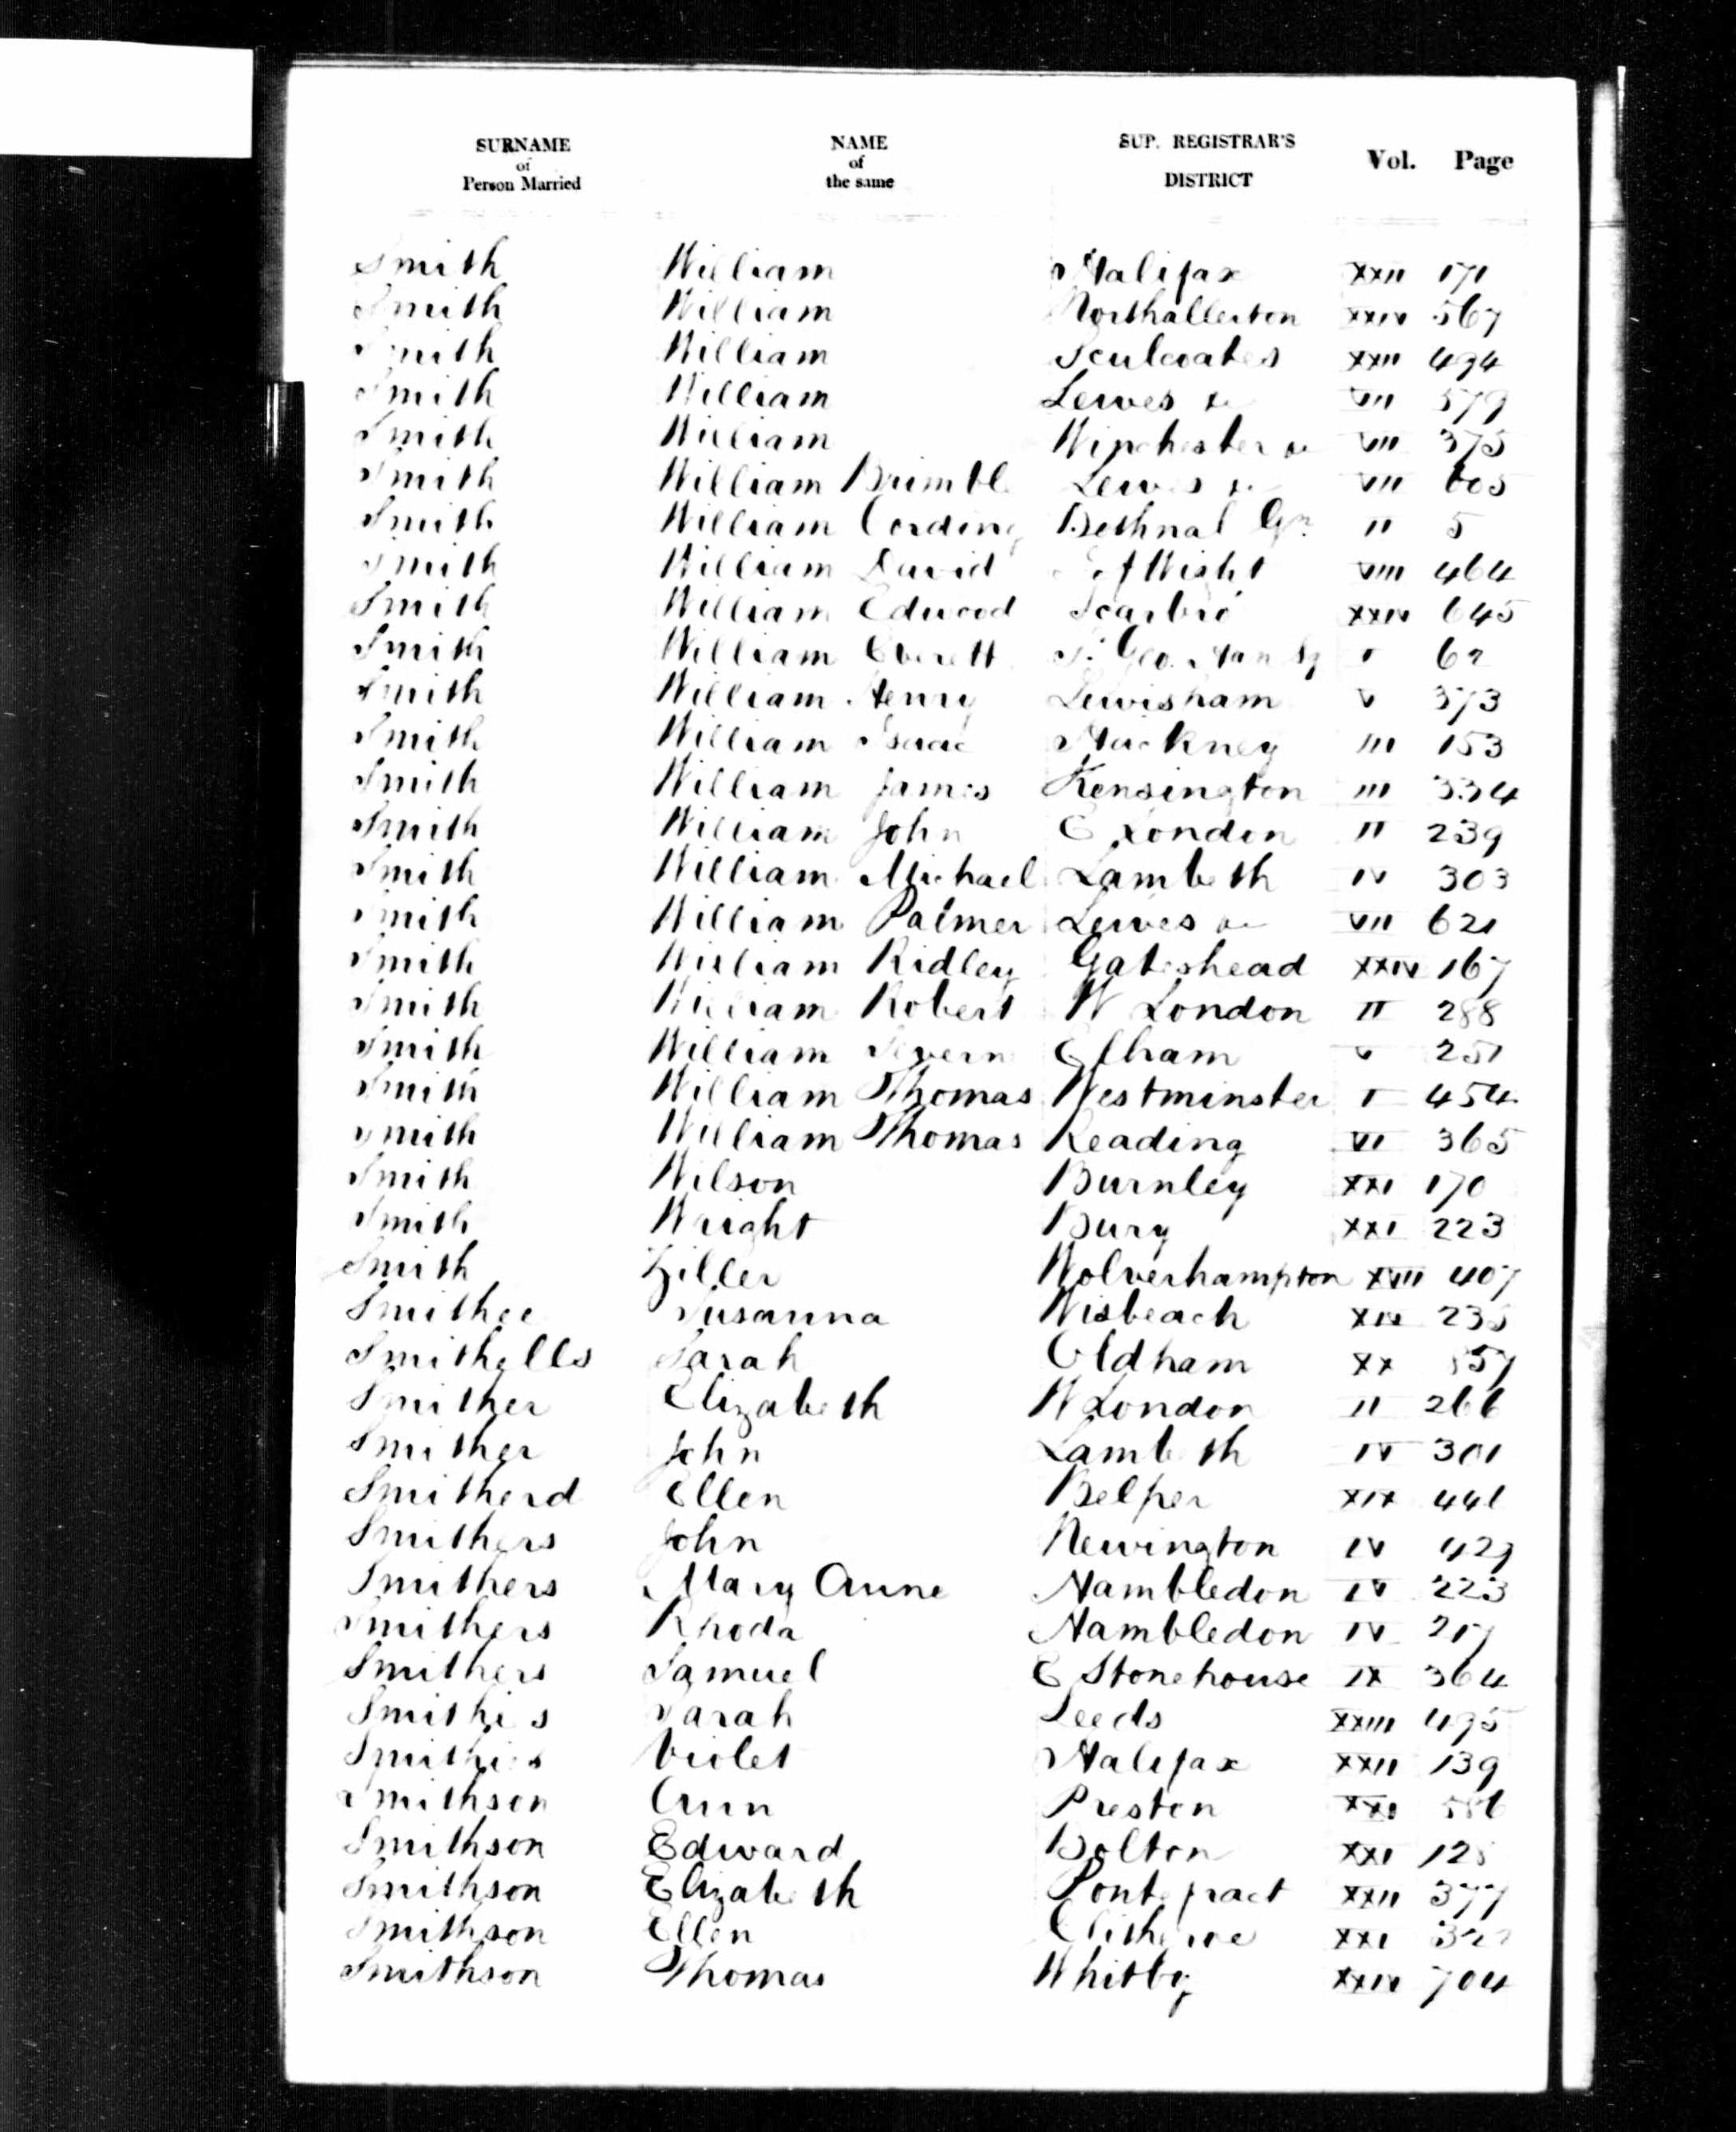 SURNAME of Person Married NAME of the same SUP. REGISTRAR'S DISTRICT Vol. Page
Smith William Halifax XXII 171
Smith William Northallerton XXIV 567
Smith William Sculcoates XXII 494
Smith William Lewes &c VII 579
Smith William Winchester &c VII 375
Smith William Brimbl Lewes &c VII 605
Smith William Cording Bethnal Gn. II 5
Smith William David I of Wight VIII 464
Smith William Edwood Scarbro' XXIV 645
Smith William Everett St Geo. Han Sq I 62
Smith William Henry Lewisham V 373
Smith William Isaac Hackney III 153
Smith William James Kensington III 334
Smith William John E London II 239
Smith William Michael Lambeth IV 303
Smith William Palmer Lewes &c VII 621
Smith William Ridley Gateshead XXIV 167
Smith William Robert W London II 288
Smith William Severn Elham V 251
Smith William Thomas Westminster I 454
Smith William Thomas Reading VI 365
Smith Wilson Burnley XXI 170
Smith Wright Bury XXI 223
Smith Ziller Wolverhampton XVII 407
Smithee Susanna Wisbeach XIV 235
Smithells Sarah Oldham XX 557
Smither Elizabeth W London II 266
Smither John Lambeth IV 301
Smitherd Ellen Belper XIX 441
Smithers John Newington IV 429
Smithers Mary Anne Hambledon IV 223
Smithers Rhoda Hambledon IV 217
Smithers Samuel E Stonehouse IX 364
Smithies Sarah Leeds XXIII 495
Smithies Violet Halifax XXII 139
Smithson Ann Preston XXI 586
Smithson Edward Bolton XXI
Smithson Elizabeth Pontefract XXII 377
Smithson Ellen Clitheroe XXI
Smithson Thomas Whitby XXIV 704